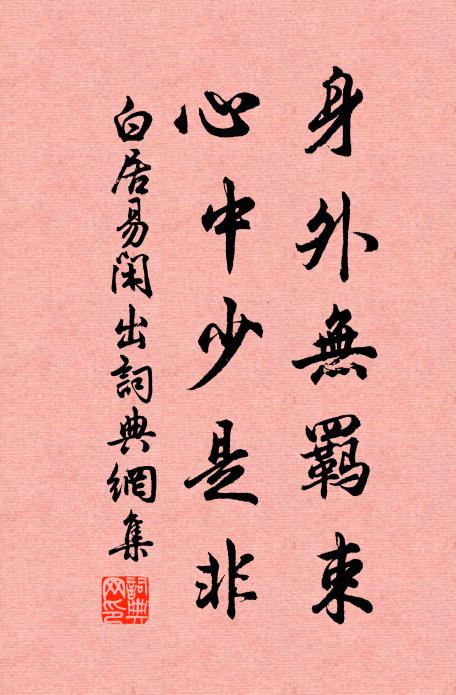 身外無羈束
心中少是非
白居易閑出詞典網集
詞典網印